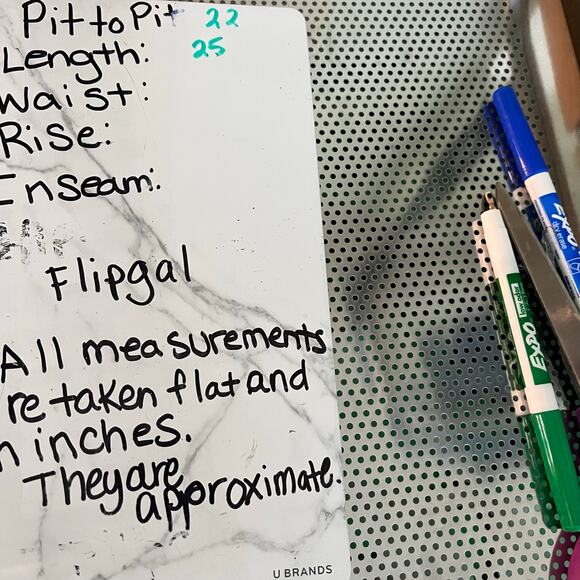 Pit to Pit 22
Length: 25
Waist:
Rise:
Inseam:
Flipgal
All measurements
re taken flat and
n inches.
They are
approximate.
U BRANDS
EXPO
dry erase
EXPO
low odor